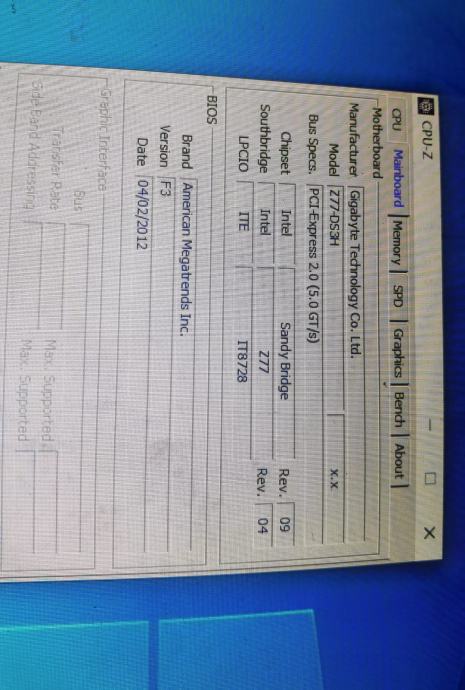 CPU-Z
CPU Mainboard Memory SPD Graphics Bench About
Motherboard
Manufacturer Gigabyte Technology Co. Ltd.
Model Z77-DS3H x.x
Bus Specs. PCI-Express 2.0 (5.0 GT/s)
Chipset Intel Sandy Bridge Rev. 09
Southbridge Intel Z77 Rev. 04
LPCIO ITE IT8728
BIOS
Brand American Megatrends Inc.
Version F3
Date 04/02/2012
Graphic Interface
Bus
Trans. Rate Max. Supported
Side Band Addressing Max. Supported